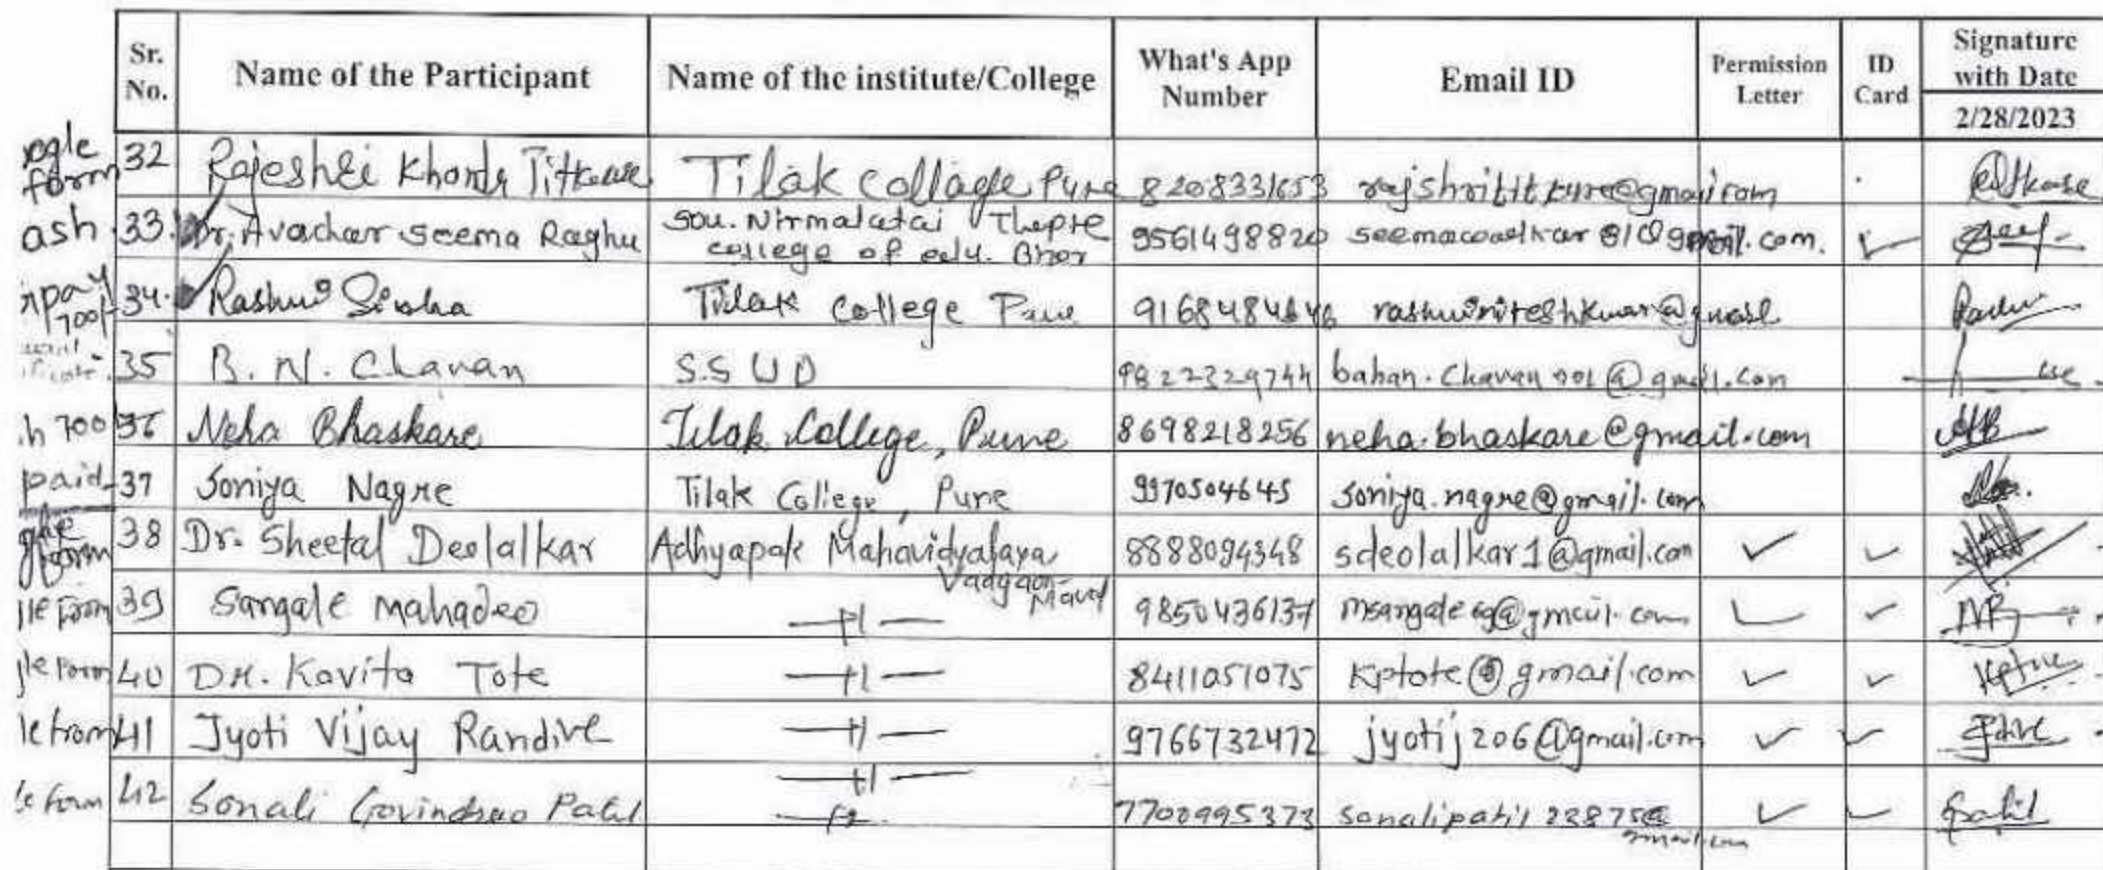 Sr. No. Name of the Participant Name of the institute/College What's App Number Email ID Permission Letter ID Card Signature with Date
2/28/2023
form 32 Rajeshri Khonde Titkare Tilak collage Pune 8208331653
ash 33. Dr. Avachar Seema Raghu Sou. Nirmalatai Thopte college of edu. Bhor 9561498820
700/- 34. Sinha Tilak College Pune
35 B. N. Chavan S.S U D 9822329744
700 36 Neha Bhaskare Tilak College, Pune 8698218256 neha.bhaskare@gmail.com
paid 37 Soniya Nagre Tilak College, Pune 9970504645 soniya.nagre@gmail.com
form 38 Dr. Sheetal Deolalkar Adhyapak Mahavidyalaya Vadgaon Maval 8888094348 sdeolalkar1@gmail.com ✓ ✓
39 Sangale Mahadeo —11— 9850436137 ✓ ✓
form 40 DR. Kavita Tote —11— 8411051075 kptote@gmail.com ✓ ✓
from 41 Jyoti Vijay Randive —11— 9766732472 jyotij206@gmail.com ✓ ✓
—11—
form 42 Sonali Govindrao Patil 7700995373 sonalipatil22875@gmail.com ✓ ✓ Spatil